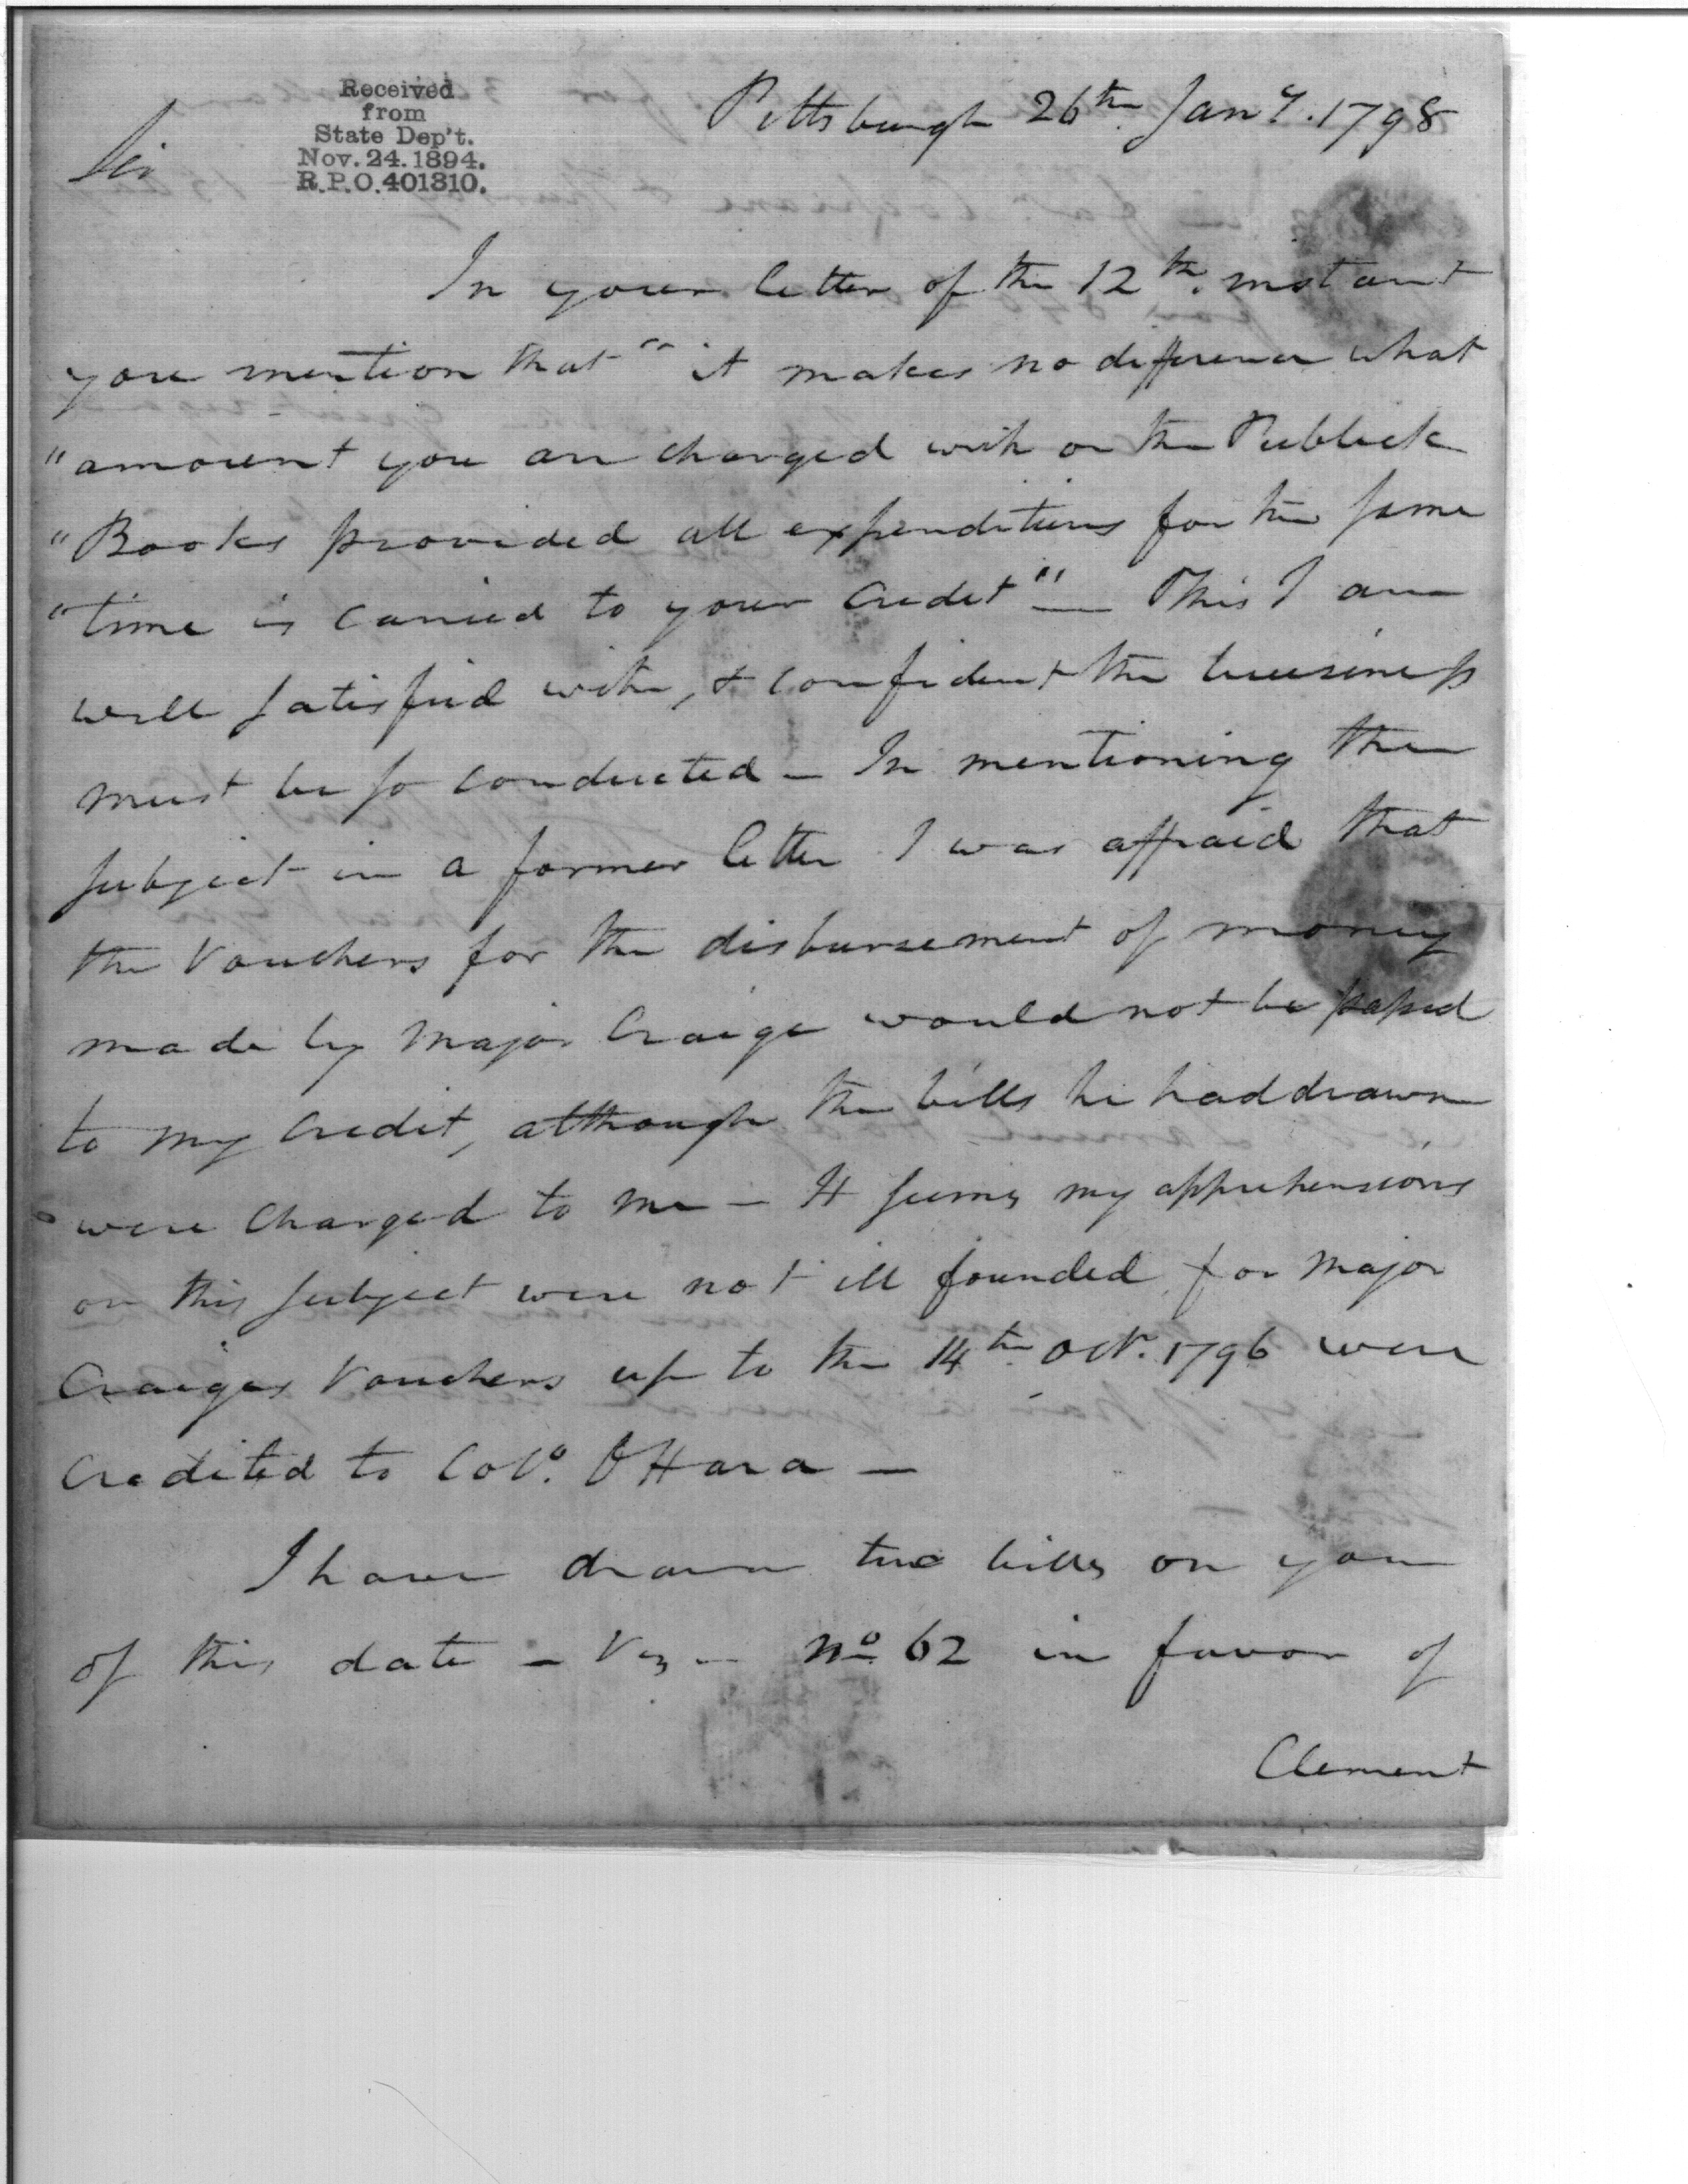 Received
from
State Dep't.
Nov. 24. 1894.
R.P.O. 401310.
Pittsburgh 26th Jany. 1798
Sir
In your letter of the 12th. instant
you mention that "it makes no difference what
"amount you are charged with on the Publick
"Books provided all expenditures for the same
"time is carried to your credit" — This I am
well satisfied with, & confident the business
must be so conducted — In mentioning the
subject in a former letter I was affraid that
the Vouchers for the disbursement of money
made by Major Craige would not be passed
to my credit, although the bills he had drawn
were charged to me — It seems my apprehensions
on this subject were not ill founded, for Major
Craiges Vouchers up to the 14th Octr. 1796 were
credited to Colo. OHara —
I have drawn two bills on you
of this date — Viz — No 62 in favor of
Clement